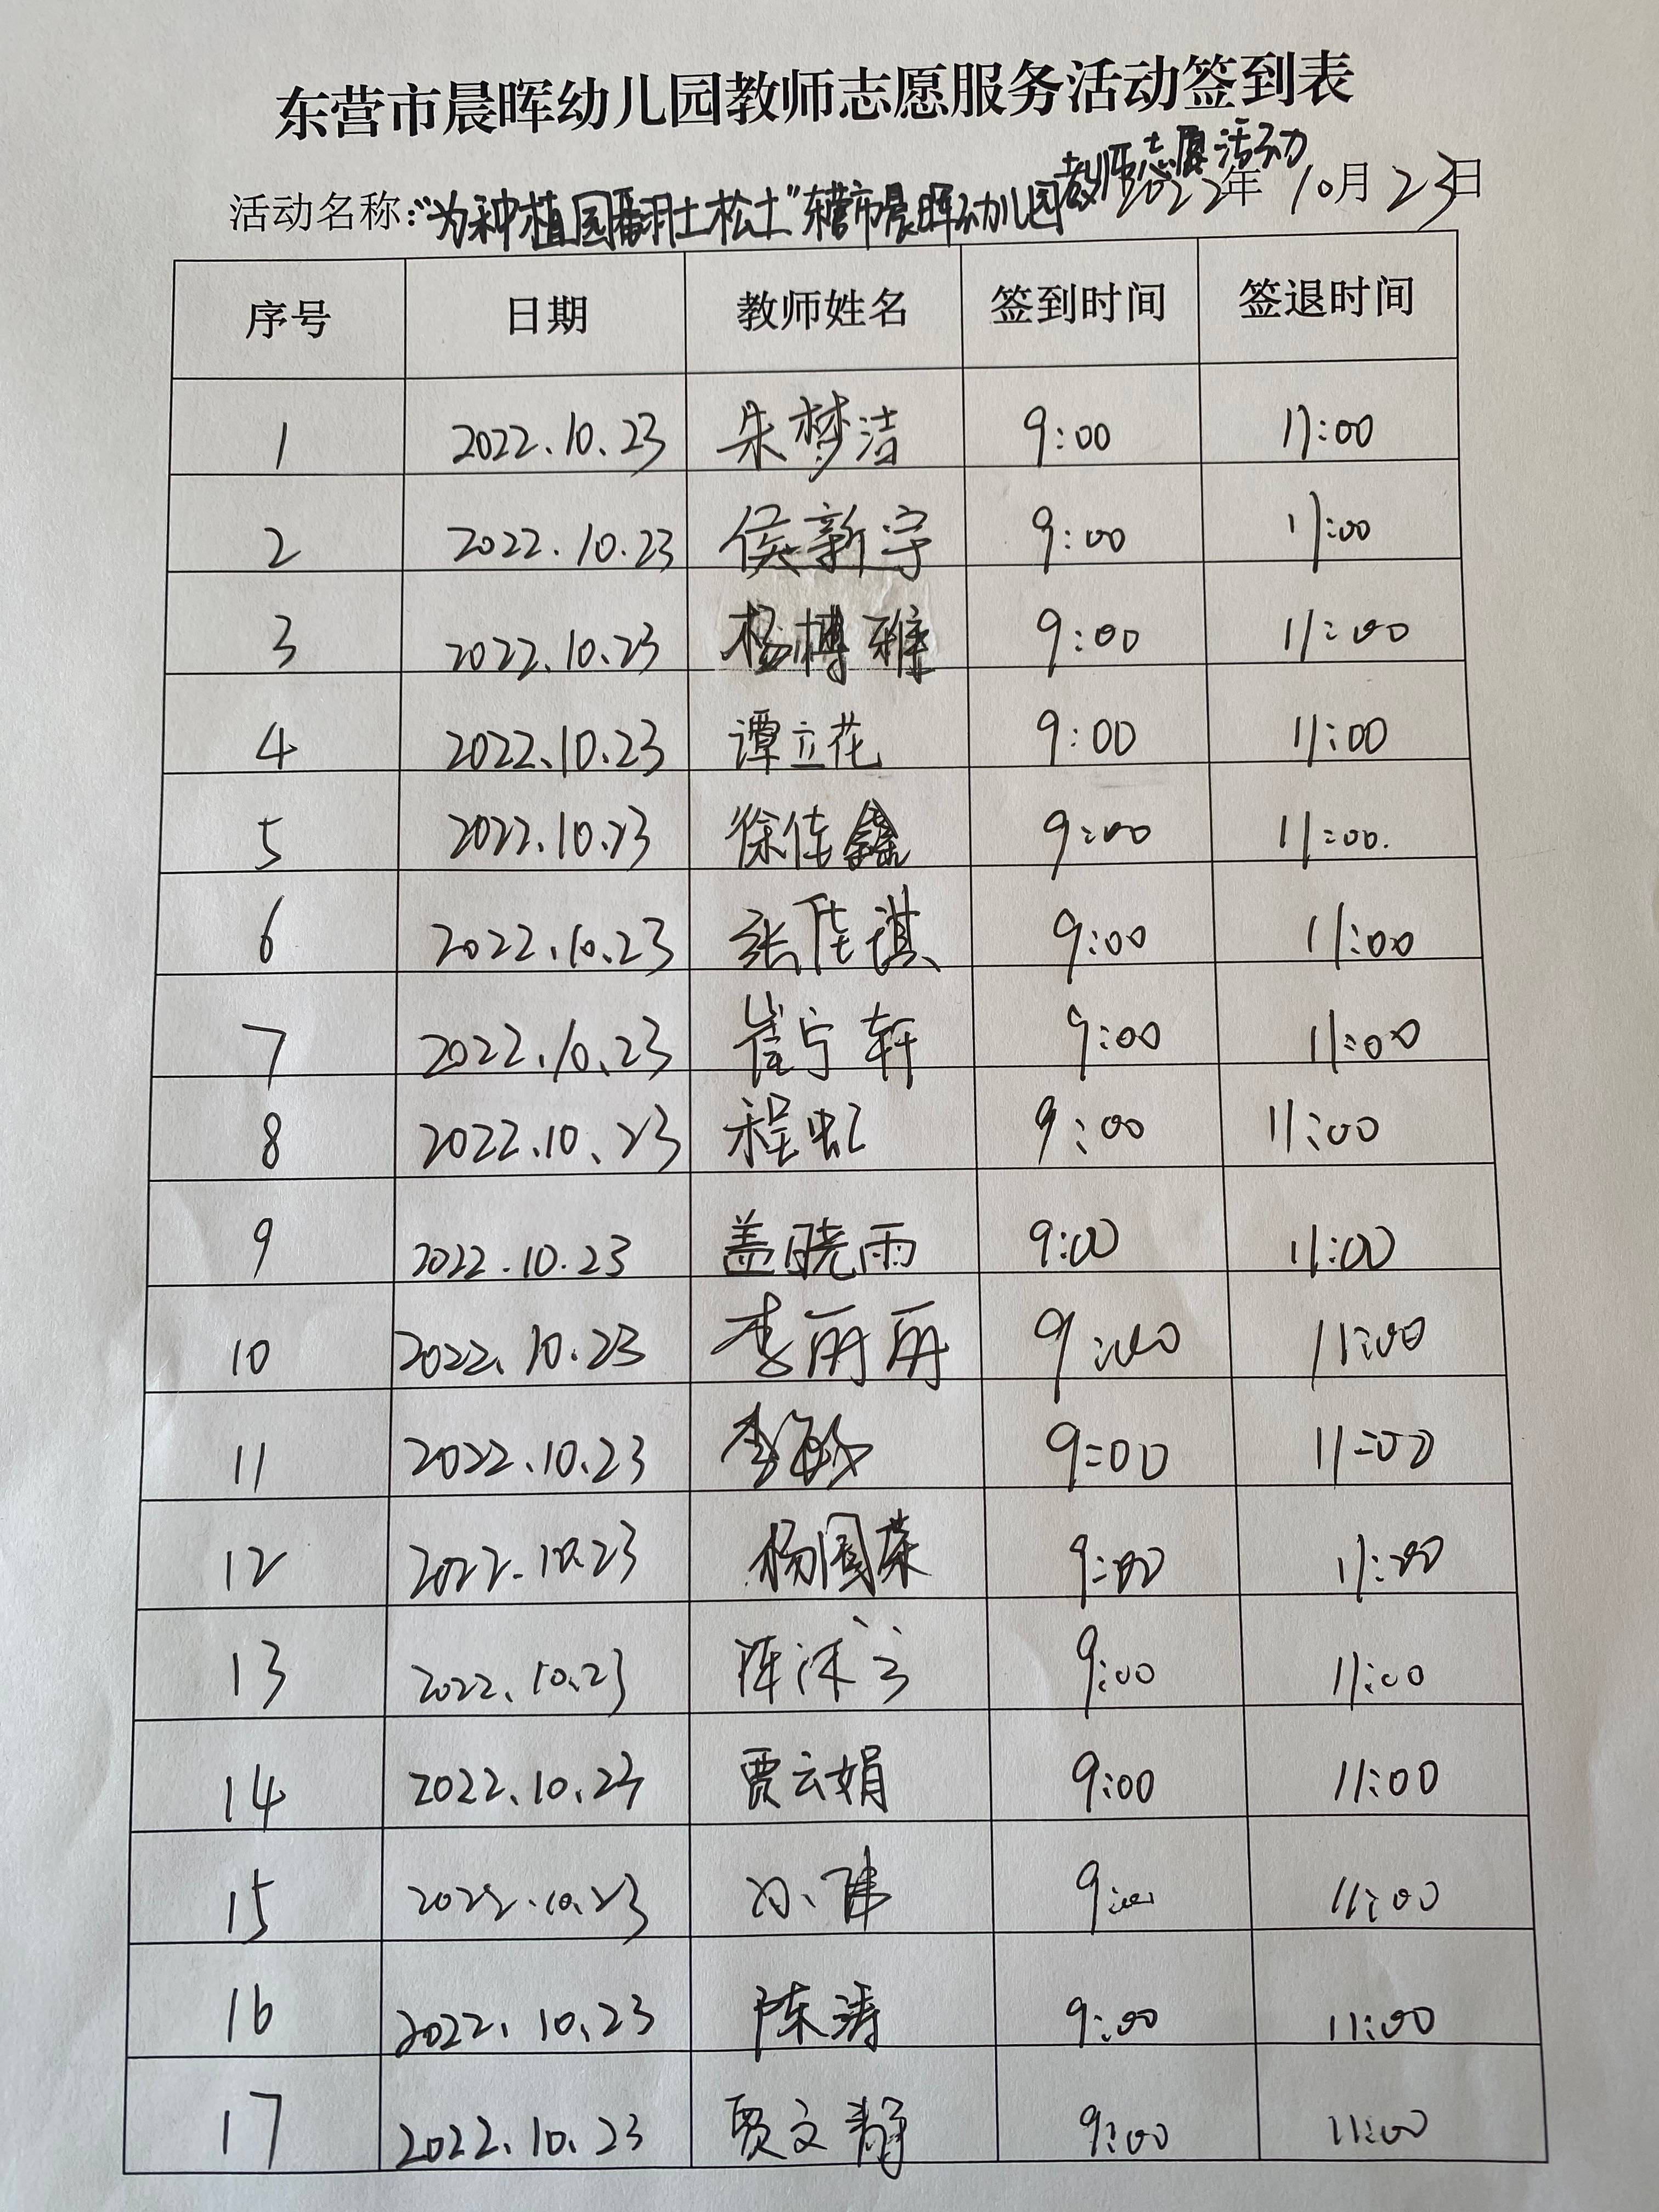 东营市晨晖幼儿园教师志愿服务活动签到表
活动名称:“为种植园翻土松土”东营市晨晖幼儿园教师志愿活动 2022年10月23日
序号 日期 教师姓名 签到时间 签退时间
1 2022.10.23 朱梦洁 9:00 11:00
2 2022.10.23 侯新宇 9:00 11:00
3 2022.10.23 杨博雅 9:00 11:00
4 2022.10.23 谭立花 9:00 11:00
5 2022.10.23 徐佳鑫 9:00 11:00.
6 2022.10.23 张佳琪 9:00 11:00
7 2022.10.23 崔宁轩 9:00 11:00
8 2022.10.23 程虹 9:00 11:00
9 2022.10.23 盖晓雨 9:00 11:00
10 2022.10.23 李丽丽 9:00 11:00
11 2022.10.23 李敏 9:00 11:00
12 2022.10.23 杨国荣 9:00 11:00
13 2022.10.23 9:00 11:00
14 2022.10.23 贾云娟 9:00 11:00
15 2022.10.23 9:00 11:00
16 2022.10.23 陈涛 9:00 11:00
17 2022.10.23 贾文静 9:00 11:00